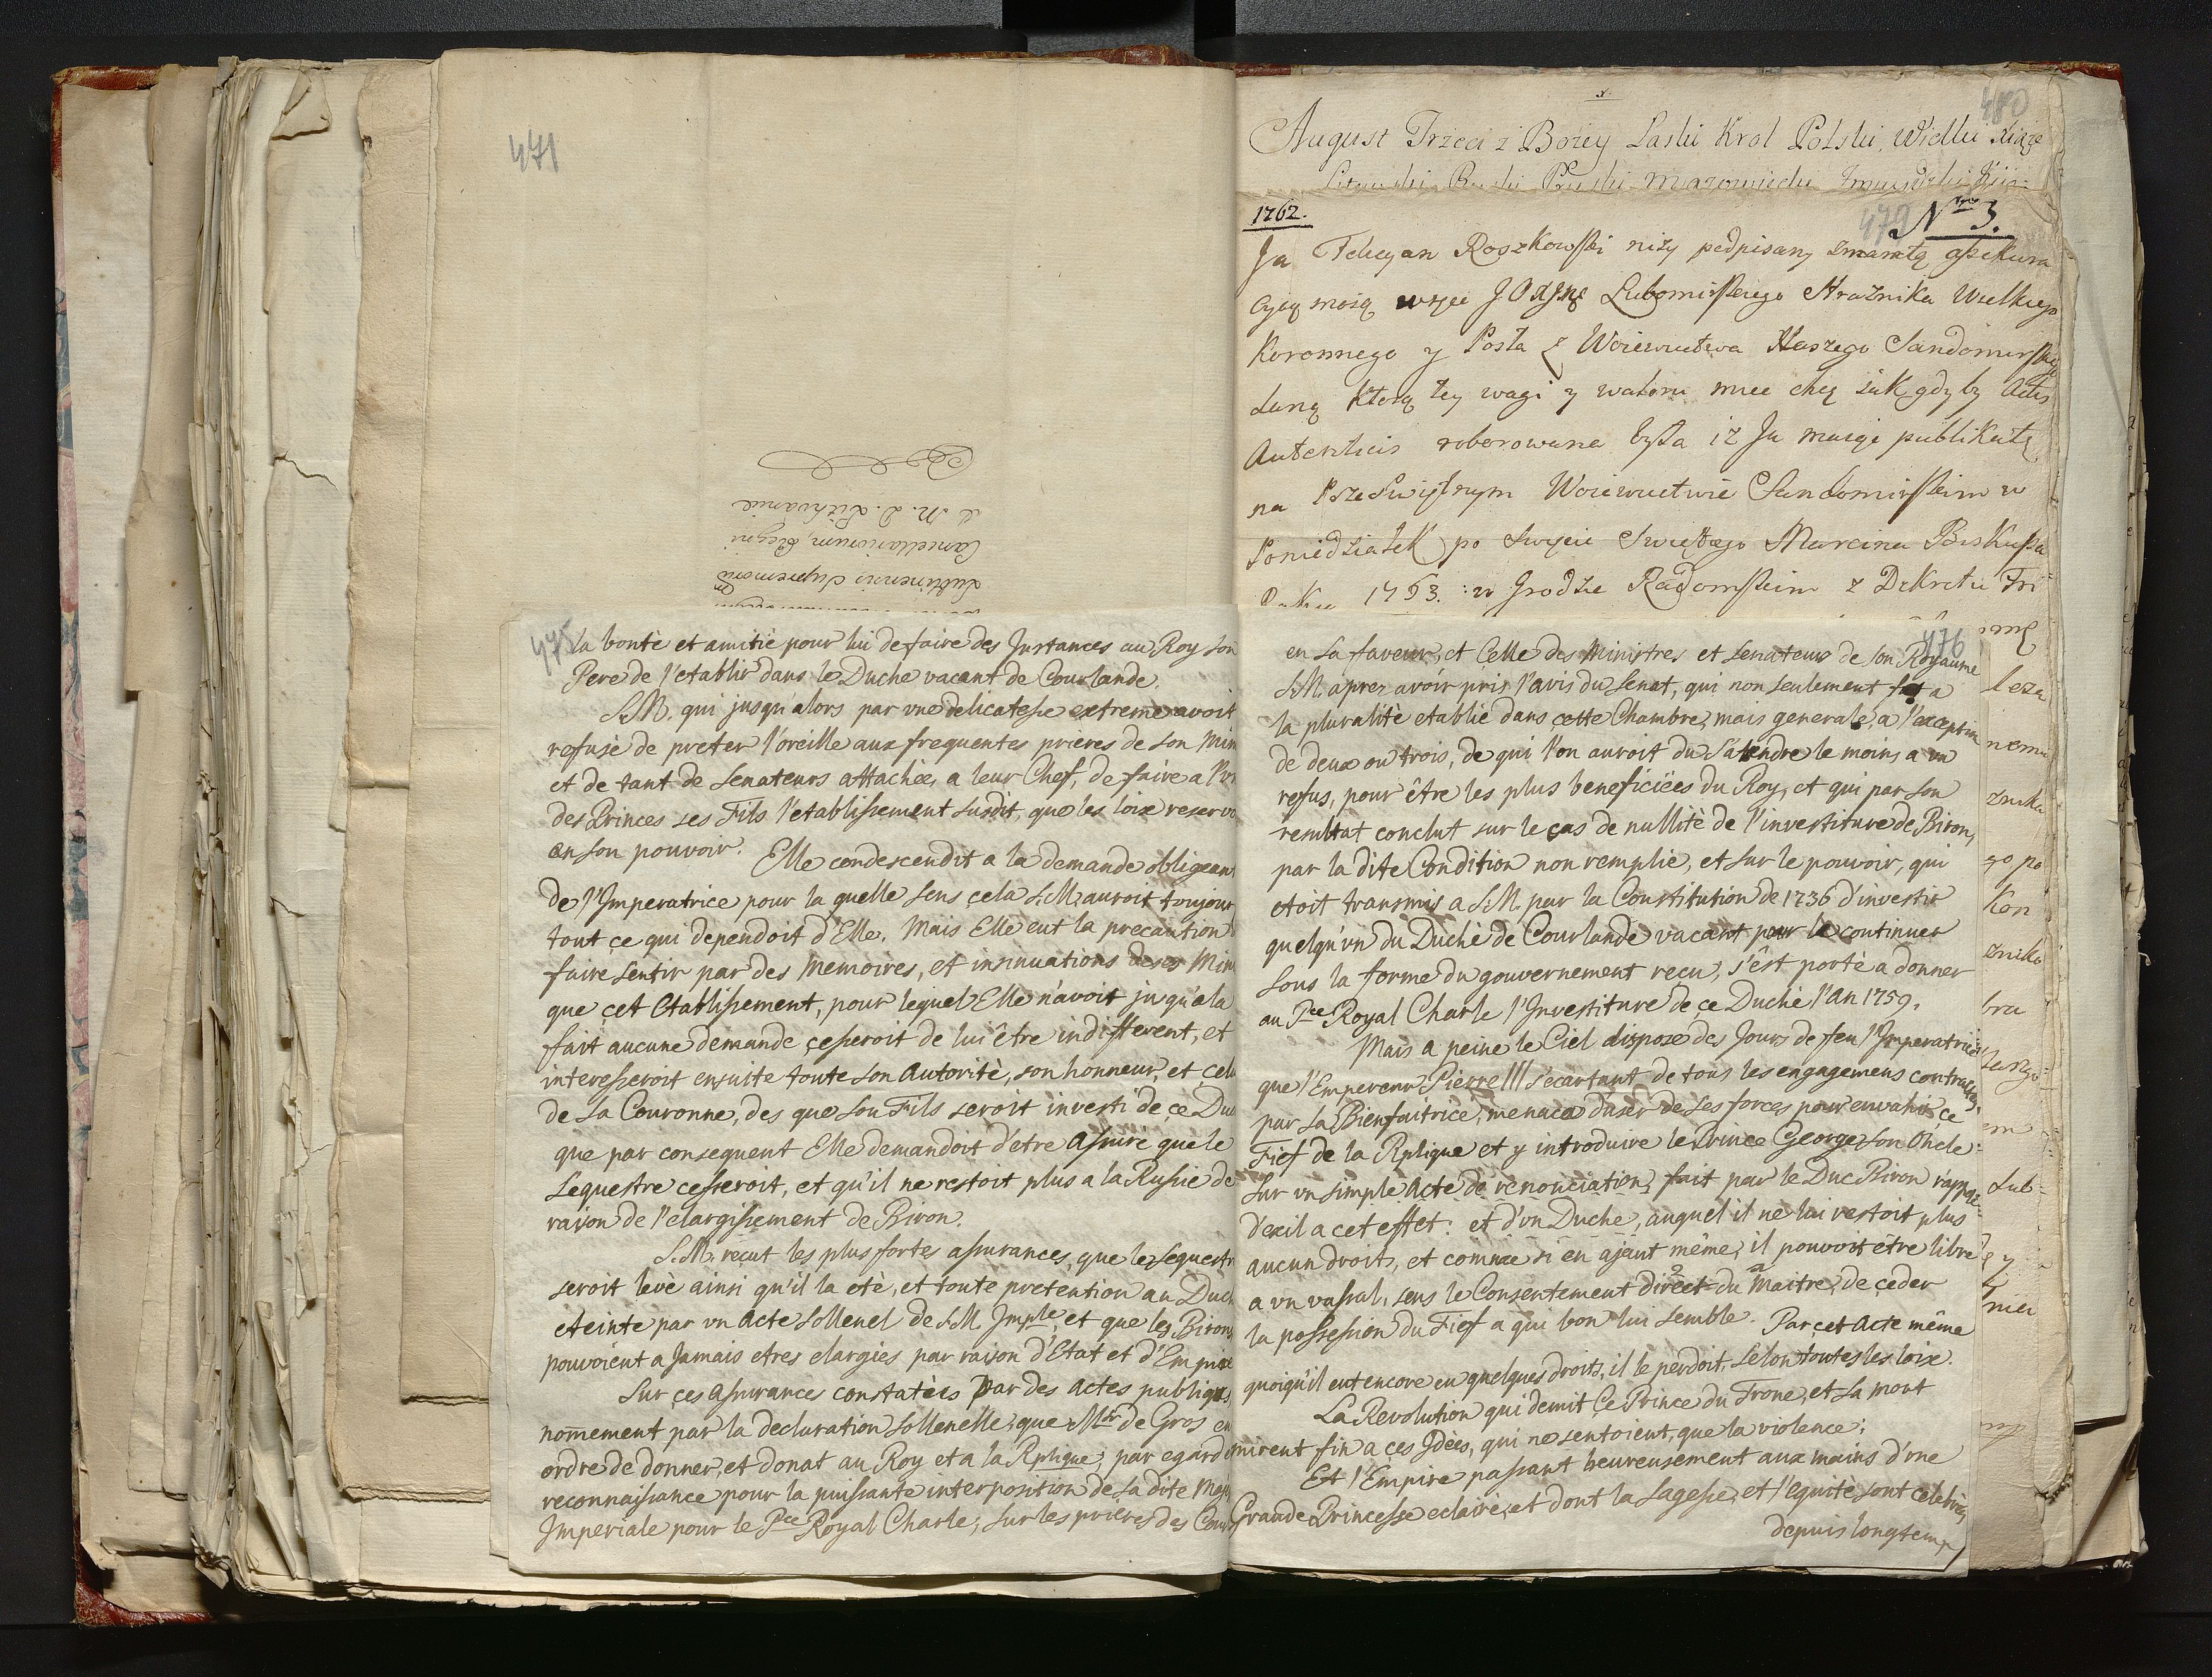 471
S. M. D. Lithvaniæ
Cancellariorum, Regni
Lublinensis Supremorū
475
la bontè et amitiè pour lui de faire des Instances au Roy son
Pere de l'etablir dans le Duchè vacant de Courlande.
S.M. qui jusqu'alors par vne delicatesse extreme avoit
refusè de preter l'oreille aux frequentes prieres de son Min
et de tant de Senateurs attachèes a leur Chef, de faire a l'vn
des Princes ses Fils l'etablissement susdit, que les loix reserv
en son pouvoir. Elle condescendit a la demande obligeant
de l'Imperatrice pour la quelle sens çela S.M. auroit toujour
tout çe qui dependoit d'Elle. Mais Elle eut la precaution
faire sentir par des Memoires, et insinuations de ses Min
que çet Etablissement, pour lequel Elle n'avoit jusqu'a la
fait aucune demande çesseroit de lui être indifferent, et
interesseroit ensuite toute son Autoritè, son honneur, et çel
de Sa Couronne, des que son Fils seroit investi de çe Duc
que par consequent Elle demandoit d'etre Assurè que le
Sequestre cesseroit, et qu'il ne restoit plus a la Russie de
raison de l'elargissement de Biron.
S.M. reçut les plus fortes assurances, que le Sequestr
seroit levè ainsi qu'il la etè, et toute pretention au Duch
eteinte par vn Acte sollenel de S.M. Imple, et que les Birons
pouvoient a Jamais etres elargies par raison d'Etat et d'Empire
Sur çes Assurances constatèes par des Actes publiques,
nom̄ement par la declaration sollenelle, que Mr de Gros en
ordre de donner, et donat au Roy et a la Rplique, par egard d
reconnaissance pour la puissante interposition de Sa dite Maje
Imperiale pour le Pce Royal Charle, sur les prieres des Cour
480
August Trzeci z Bożey Łaski Krol Polski, Wielki Xiąże
Litewski Ruski Pruski Mazowiecki Zmudzki Kiio
1762.
479 Nro 3.
Ja Felicyan Roszkowski niży podpisany zmamtą assekura
cyią moią wręce J O Xsne Lubomirskiego Strażnika Wielkiego
Koronnego y Posła z Woiewuctwa Naszego Sandomirskiego
daną Ktorą tey wagi y waloru miec chcę iak gdyby Actis
Autenticis roborowana była iż Ja maiąc publikatę
na Przeświętnym Woiewuctwie Sandomirskim w
Poniedziałek po Swięcie Swiętego Marcina Biskupa
Roku 1763. w Grodzie Radomskim z Dekretu Tri
476
en Sa faveur, et Celle des Ministres et Senateurs de Son Royaume
S.M. aprez avoir pris l'avis du Senat, qui non seulement fut a
la pluralitè etablie dans cette Chambre, mais generale, a l'exception
de deux ou trois, de qui l'on auroit du s'attendre le moins a un
refus, pour être les plus beneficièes du Roy, et qui par son
resultat conclut sur le cas de nullitè de l'investiture de Biron,
par la dite Condition non remplie, et sur le pouvoir, qui
etoit transmis a S.M. par la Constitution de 1736 d'investir
quelqu'vn du Duchè de Courlande vacant pour le continuer
Sous la forme du gouvernement reçu, s'est portè a donner
au Pce Royal Charle l'Investiture de çe Duchè l'an 1759.
Mais a peine le Ciel dispose des Jours de feu l'Imperatrice
que l'Empereur Pierre III s'ecartant de tous les engagemens contractes
par Sa Bienfaitrice, menaca d'user de Ses forces pour envahir çe
Fief de la Rplique et y introduire le Prince George Son Oncle
Sur vn simple Acte de renonciation, fait par le Duc Biron rappel
d'exil a cet effet: et d'vn Duchè, auquel il ne lui restoit plus
aucun droits, et comme si en ajant même, il pouvoit être libre
a vn vassal, sens le Consentement direct du Maitre, de çeder
la possession du Fief a qui bon lui semble. Par çet Acte même
quoiqu'il eut encore eu quelques droits, il le perdoit, selon toutes les loix.
La Revolution qui demit Ce Prince du Trone, et Sa mort
mirent fin a çes Idèes, qui ne sentoient, que la violence:
Et l'Empire passant heureusement aux mains d'vne
Grande Princesse eclairèe, et dont la Sagesse, et l'equitè sont celebrèes
depuis longtems
leza
nemu
znika
go po
Kon
znika
bra
em
Lub